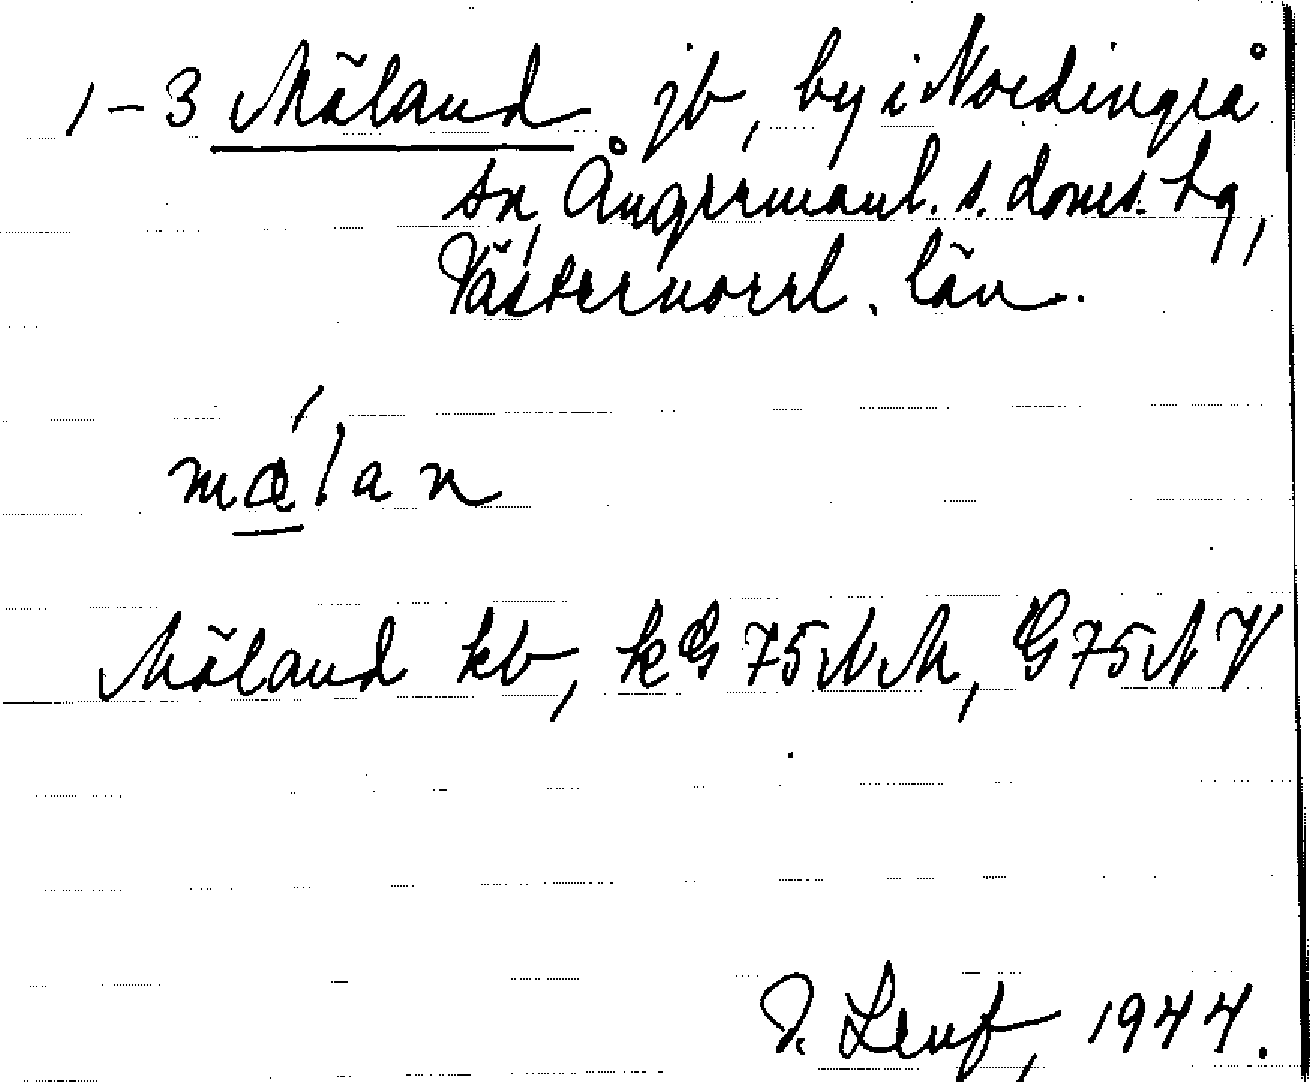 1-3 Mäland jb, by i Nordingrå
sn, Ångermanl. s. doms. hg,
Västernorrl. län.
málan
Mäland kb, kG 75 NM, G 75 NV
Lenf, 1944.